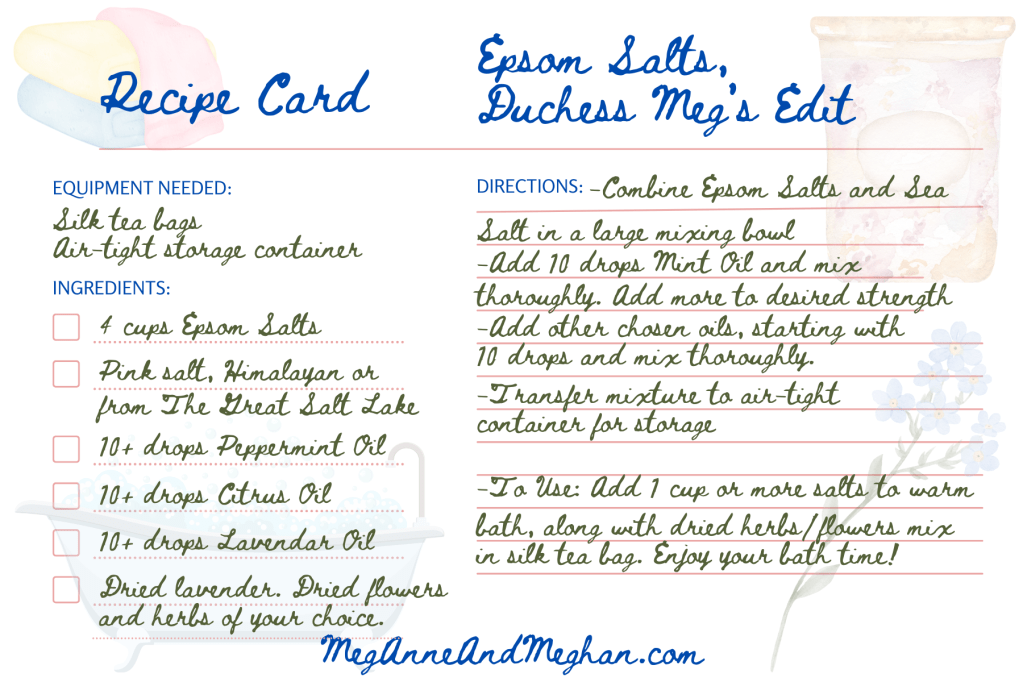 Recipe Card
Epsom Salts,
Duchess Meg's Edit
EQUIPMENT NEEDED:
Silk tea bags
Air-tight storage container
INGREDIENTS:
4 cups Epsom Salts
Pink salt, Himalayan or
from The Great Salt Lake
10+ drops Peppermint Oil
10+ drops Citrus Oil
10+ drops Lavendar Oil
Dried lavender. Dried flowers
and herbs of your choice.
DIRECTIONS: -Combine Epsom Salts and Sea
Salt in a large mixing bowl
-Add 10 drops Mint Oil and mix
thoroughly. Add more to desired strength
-Add other chosen oils, starting with
10 drops and mix thoroughly.
-Transfer mixture to air-tight
container for storage
-To Use: Add 1 cup or more salts to warm
bath, along with dried herbs/flowers mix
in silk tea bag. Enjoy your bath time!
MegAnneAndMeghan.com